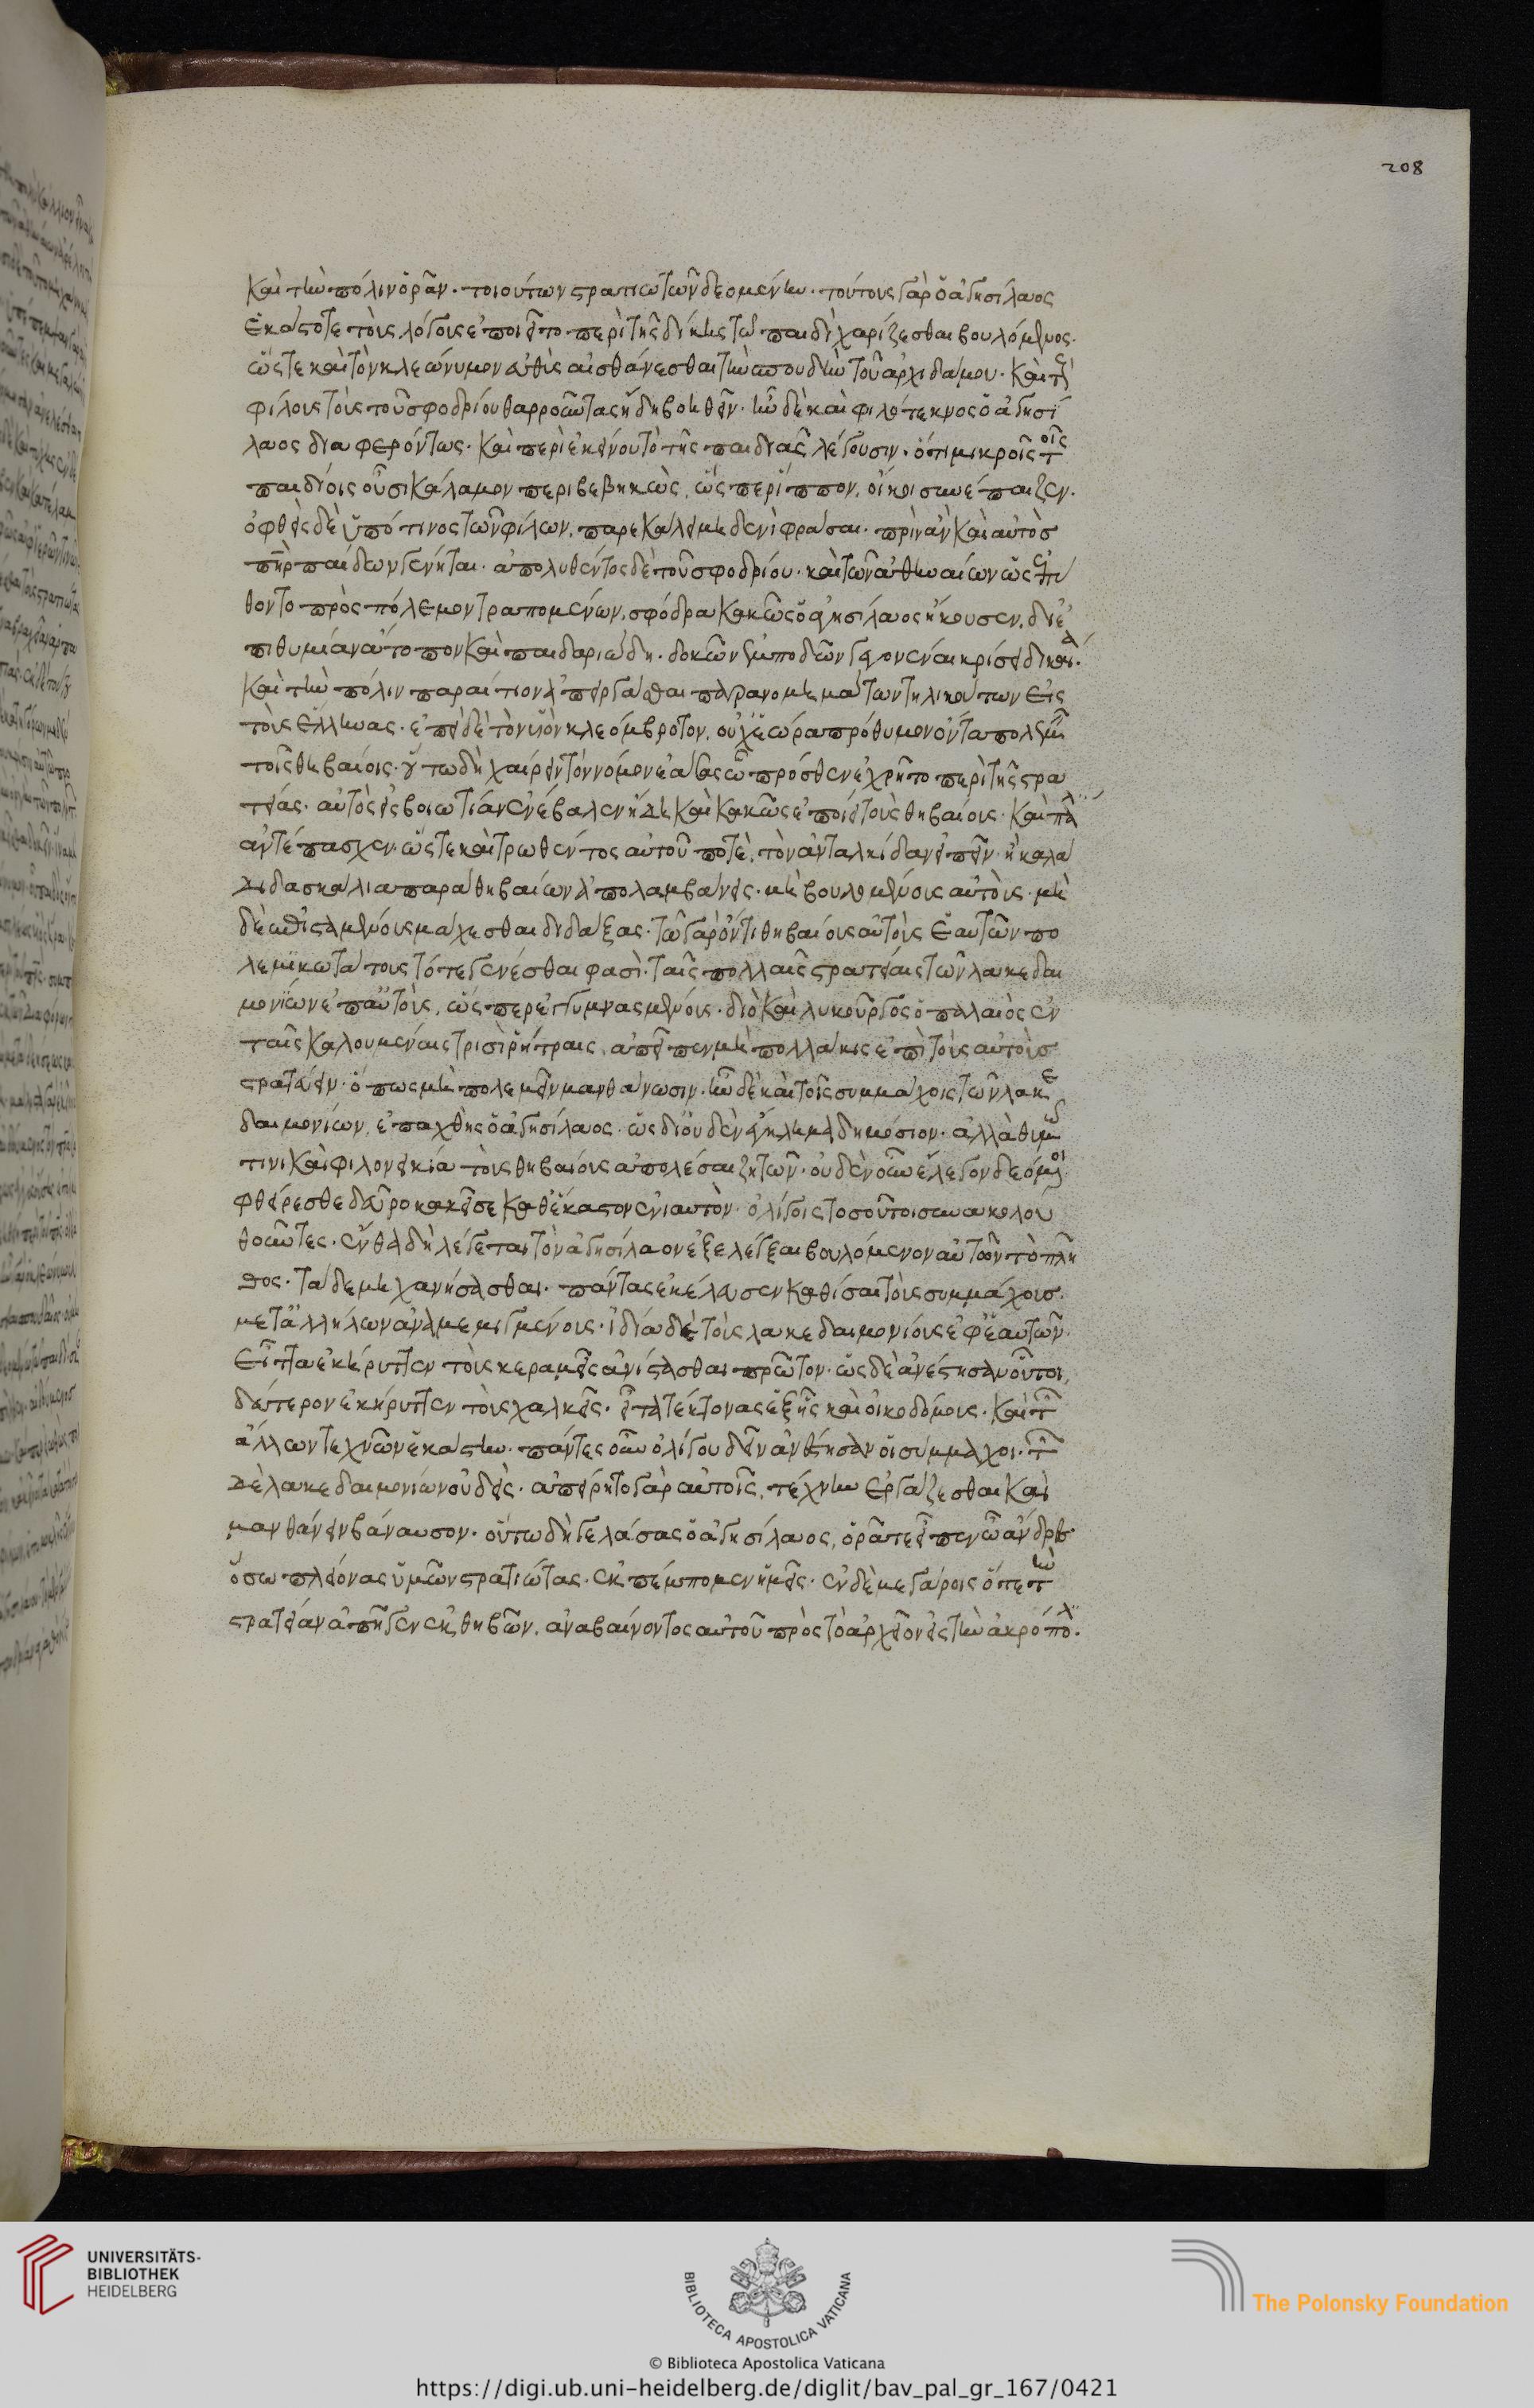 208
καὶ τὴν πόλιν ὁρᾶν· τοιούτων στρατιωτῶν δεομένην· τούτους γὰρ ὁ ἀγησίλαος
ἑκάστοτε τοὺς λόγους ἐποιεῖτο περὶ τῆς δίκης τῶ παιδὶ χαρίζεσθαι βουλόμενος·
ὥστε καὶ τὸν κλεώνυμον εὐθὺς αἰσθάνεσθαι τὴν σπουδὴν τοῦ ἀρχιδάμου· καὶ τοὺς
φίλους τοὺς τοῦ σφοδρίου θαρροῦντας ἤδη βοηθεῖν· ἦν δὲ καὶ φιλότεκνος ὁ ἀγησί
λαος διαφερόντως· καὶ περὶ ἐκείνου τὸ τῆς παιδιᾶς λέγουσιν· ὅτι μικροῖς τοῖς
παιδίοις οὖσι κάλαμον περιβεβηκὼς, ὥσπερ ἵππον, οἴκοι συνέπαιζεν·
ὀφθεὶς δὲ ὑπό τινος τῶν φίλων, παρεκάλει μηδενὶ φράσαι· πρὶν ἂν καὶ αὐτὸς
πὴρ παίδων γένηται· ἀπολυθέντος δὲ τοῦ σφοδρίου· καὶ τῶν ἀθηναίων ὡς ἐπύ
θοντο πρὸς πόλεμον τραπομένων, σφόδρα κακῶς ὁ ἀγησίλαος ἤκουσεν, δι' ἐ
πιθυμίαν ἄτοπον καὶ παιδαριώδη· δοκῶν ἐμποδὼν γεγονέναι κρίσει δικαί·
καὶ τὴν πόλιν παραίτιον ἀπειργάσθαι παρανομημάτων τηλικούτων εἰς
τοὺς ἕλληνας· ἐπεὶ δὲ τὸν κλεόμβροτον, οὐχ ἑώρα πρόθυμον ὄντα πολεμεῖν
τοῖς θηβαίοις· οὕτω δὴ χαίρειν τὸν νόμον ἐάσας ὧ πρόσθεν ἐχρῆτο περὶ τῆς στρα
τείας· αὐτὸς εἰς βοιωτίαν ἐνέβαλεν ἤδη καὶ κακῶς ἐποίει τοὺς θηβαίους· καὶ πάλιν
ἀντέπασχεν· ὥστε καὶ τρωθέντος αὐτοῦ ποτὲ, τὸν ἀνταλκίδαν εἰπεῖν· ἦ καλὰ
διδασκάλια παρὰ θηβαίων ἀπολαμβάνεις· μὴ βουλομένους αὐτοὺς· μὴ
δὲ ἐπισταμένους μάχεσθαι διδάξας· τῶ γὰρ ὄντι θηβαίους αὐτοὺς ἑαυτῶν πο
λεμικωτάτους τότε γενέσθαι φασὶ· ταῖς πολλαῖς στρατείαις τῶν λακεδαι
μονίων ἐπ' αὐτοὺς, ὥσπερ ἐγγυμνασμένους· διὸ καὶ λυκοῦργος ὁ παλαιὸς ἐν
ταῖς καλουμέναις τρισὶ ῥήτραις, ἀπεῖπεν μὴ πολλάκις ἐπὶ τοὺς αὐτοὺς
στρατεύειν· ὅπως μὴ πολεμεῖν μανθάνωσιν· ἦν δὲ καὶ τοῖς συμμάχοις τῶν λακε
δαιμονίων, ἐπαχθὴς ὁ ἀγησίλαος· ὡς δι' οὐδὲν ἔγκλημα δημόσιον· ἀλλὰ θυμῶ
τινι καὶ φιλονεικία τοὺς θηβαίους ἀπολέσαι ζητῶν· οὐδὲν οὖν ἔλεγον δεόμενοι
φθείρεσθε δεῦρο κακεῖσε καθ' ἕκαστον ἐνιαυτὸν· ὀλίγοις τοσοῦτοι συνακολου
θοῦντες· ἔνθα δὴ λέγεται τὸν ἀγησίλαον ἐξελέγξαι βουλόμενον αὐτῶν τὸ πλῆ
θος· τάδε μηχανήσασθαι· πάντας ἐκέλευσεν καθίσαι τοὺς συμμάχους
μετ' ἀλλήλων ἀναμεμιγμένους· ἰδία δὲ τοὺς λακεδαιμονίους ἐφ' ἑαυτῶν·
εἶτα ἐκήρυττεν τοὺς κεραμεῖς ἀνίστασθαι πρῶτον· ὡς δὲ ἀνέστησαν οὗτοι,
δεύτερον ἐκήρυττεν τοὺς χαλκεῖς· εἶτα τέκτονας ἑξῆς καὶ οἰκοδόμους· καὶ τῶν
ἄλλων τεχνῶν ἑκάστην· πάντες οὖν ὀλίγου δεῖν ἀνέστησαν οἱ σύμμαχοι· τῶν
δὲ λακεδαιμονίων οὐδεὶς· ἀπείρητο γὰρ αὐτοῖς, τέχνην ἐργάζεσθαι καὶ
μανθάνειν βάναυσον· οὕτω δὴ γελάσας ὁ ἀγησίλαος, ὁρᾶτε εἶπεν ὦ ἄνδρες·
ὅσω πλείονας ὑμῶν στρατιώτας· ἐκπέμπομεν ἡμεῖς· ἐν δὲ μεγάροις ὅτε τὴν
στρατείαν ἀπῆγεν ἐκ θηβῶν, ἀναβαίνοντος αὐτοῦ πρὸς τὸ ἀρχεῖον εἰς τὴν ἀκρόπολ·
UNIVERSITÄTS-
BIBLIOTHEK
HEIDELBERG
BIBLIOTECA APOSTOLICA VATICANA
The Polonsky Foundation
© Biblioteca Apostolica Vaticana
https://digi.ub.uni-heidelberg.de/diglit/bav_pal_gr_167/0421